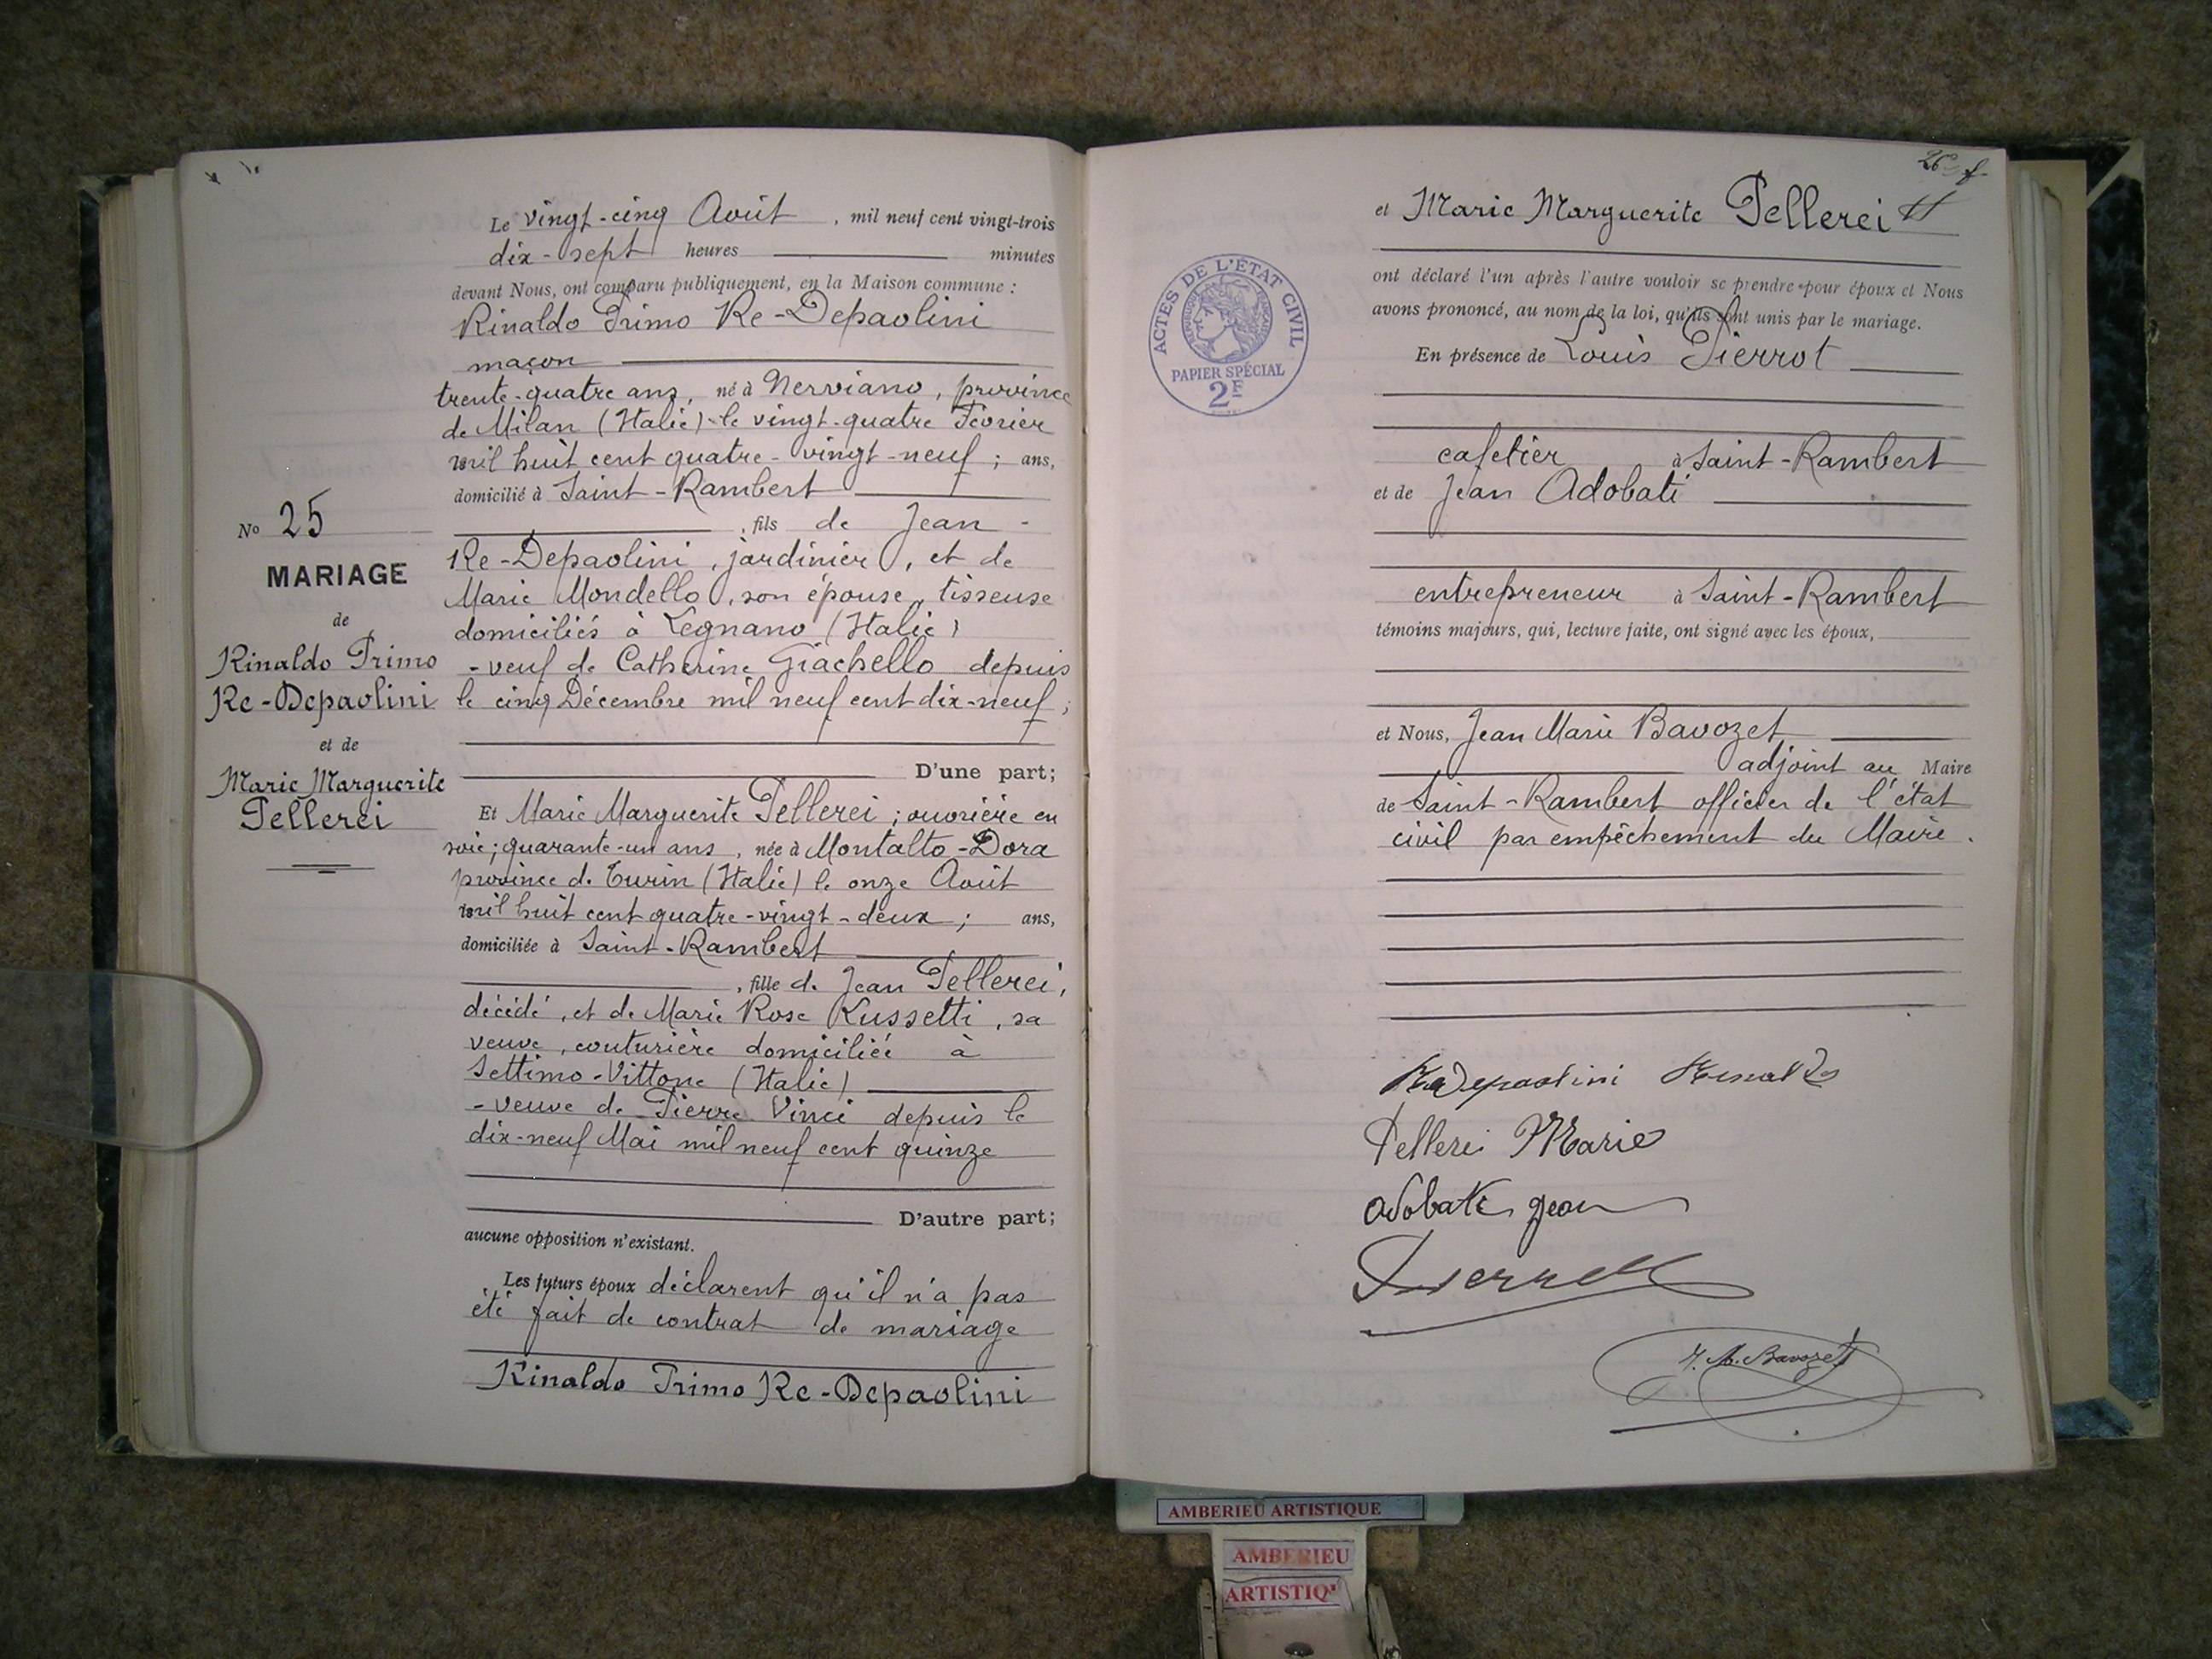 No 25
MARIAGE
de
Rinaldo Primo
Re-Depaolini
et de
Marie Marguerite
Pellerei
Le vingt-cinq Août, mil neuf cent vingt-trois
dix-sept heures minutes
devant Nous, ont comparu publiquement, en la Maison commune :
Rinaldo Primo Re-Depaolini
maçon
trente-quatre ans, né à Nerviano, province
de Milan (Italie) le vingt-quatre Février
mil huit cent quatre-vingt-neuf ; ans,
domicilié à Saint-Rambert
, fils de Jean -
Re-Depaolini, jardinier, et de
Marie Mondello, son épouse, tisseuse
domiciliés à Legnano (Italie)
- veuf de Catherine Giachello depuis
le cinq Décembre mil neuf cent dix-neuf ;
D'une part;
Et Marie Marguerite Pellerei ; ouvrière en
soie ; quarante-un ans, née à Montalto-Dora
province de Turin (Italie) le onze Août
mil huit cent quatre-vingt-deux ; ans,
domiciliée à Saint-Rambert
, fille de Jean Pellerei,
décédé, et de Marie Rose Russetti, sa
veuve, couturière domiciliée à
Settimo-Vittone (Italie)
- veuve de Pierre Vinci depuis le
dix-neuf Mai mil neuf cent quinze
D'autre part;
aucune opposition n'existant.
Les futurs époux déclarent qu'il n'a pas
été fait de contrat de mariage
Rinaldo Primo Re-Depaolini
26
et Marie Marguerite Pellerei
ont déclaré l'un après l'autre vouloir se prendre pour époux et Nous
avons prononcé, au nom de la loi, qu'ils sont unis par le mariage.
En présence de Louis Pierrot
cafetier à Saint-Rambert
et de Jean Adobati
entrepreneur à Saint-Rambert
témoins majeurs, qui, lecture faite, ont signé avec les époux,
et Nous, Jean Marie Bavozet
adjoint au Maire
de Saint-Rambert officier de l'état
civil par empêchement du Maire.
ACTES DE L'ÉTAT CIVIL
RÉPUBLIQUE FRANÇAISE
PAPIER SPÉCIAL
2F
Redepaolini Rinaldo
Pellerei Marie
Adobati Jean
Pierrot
J. M. Bavozet
AMBERIEU ARTISTIQUE
AMBERIEU
ARTISTIQ